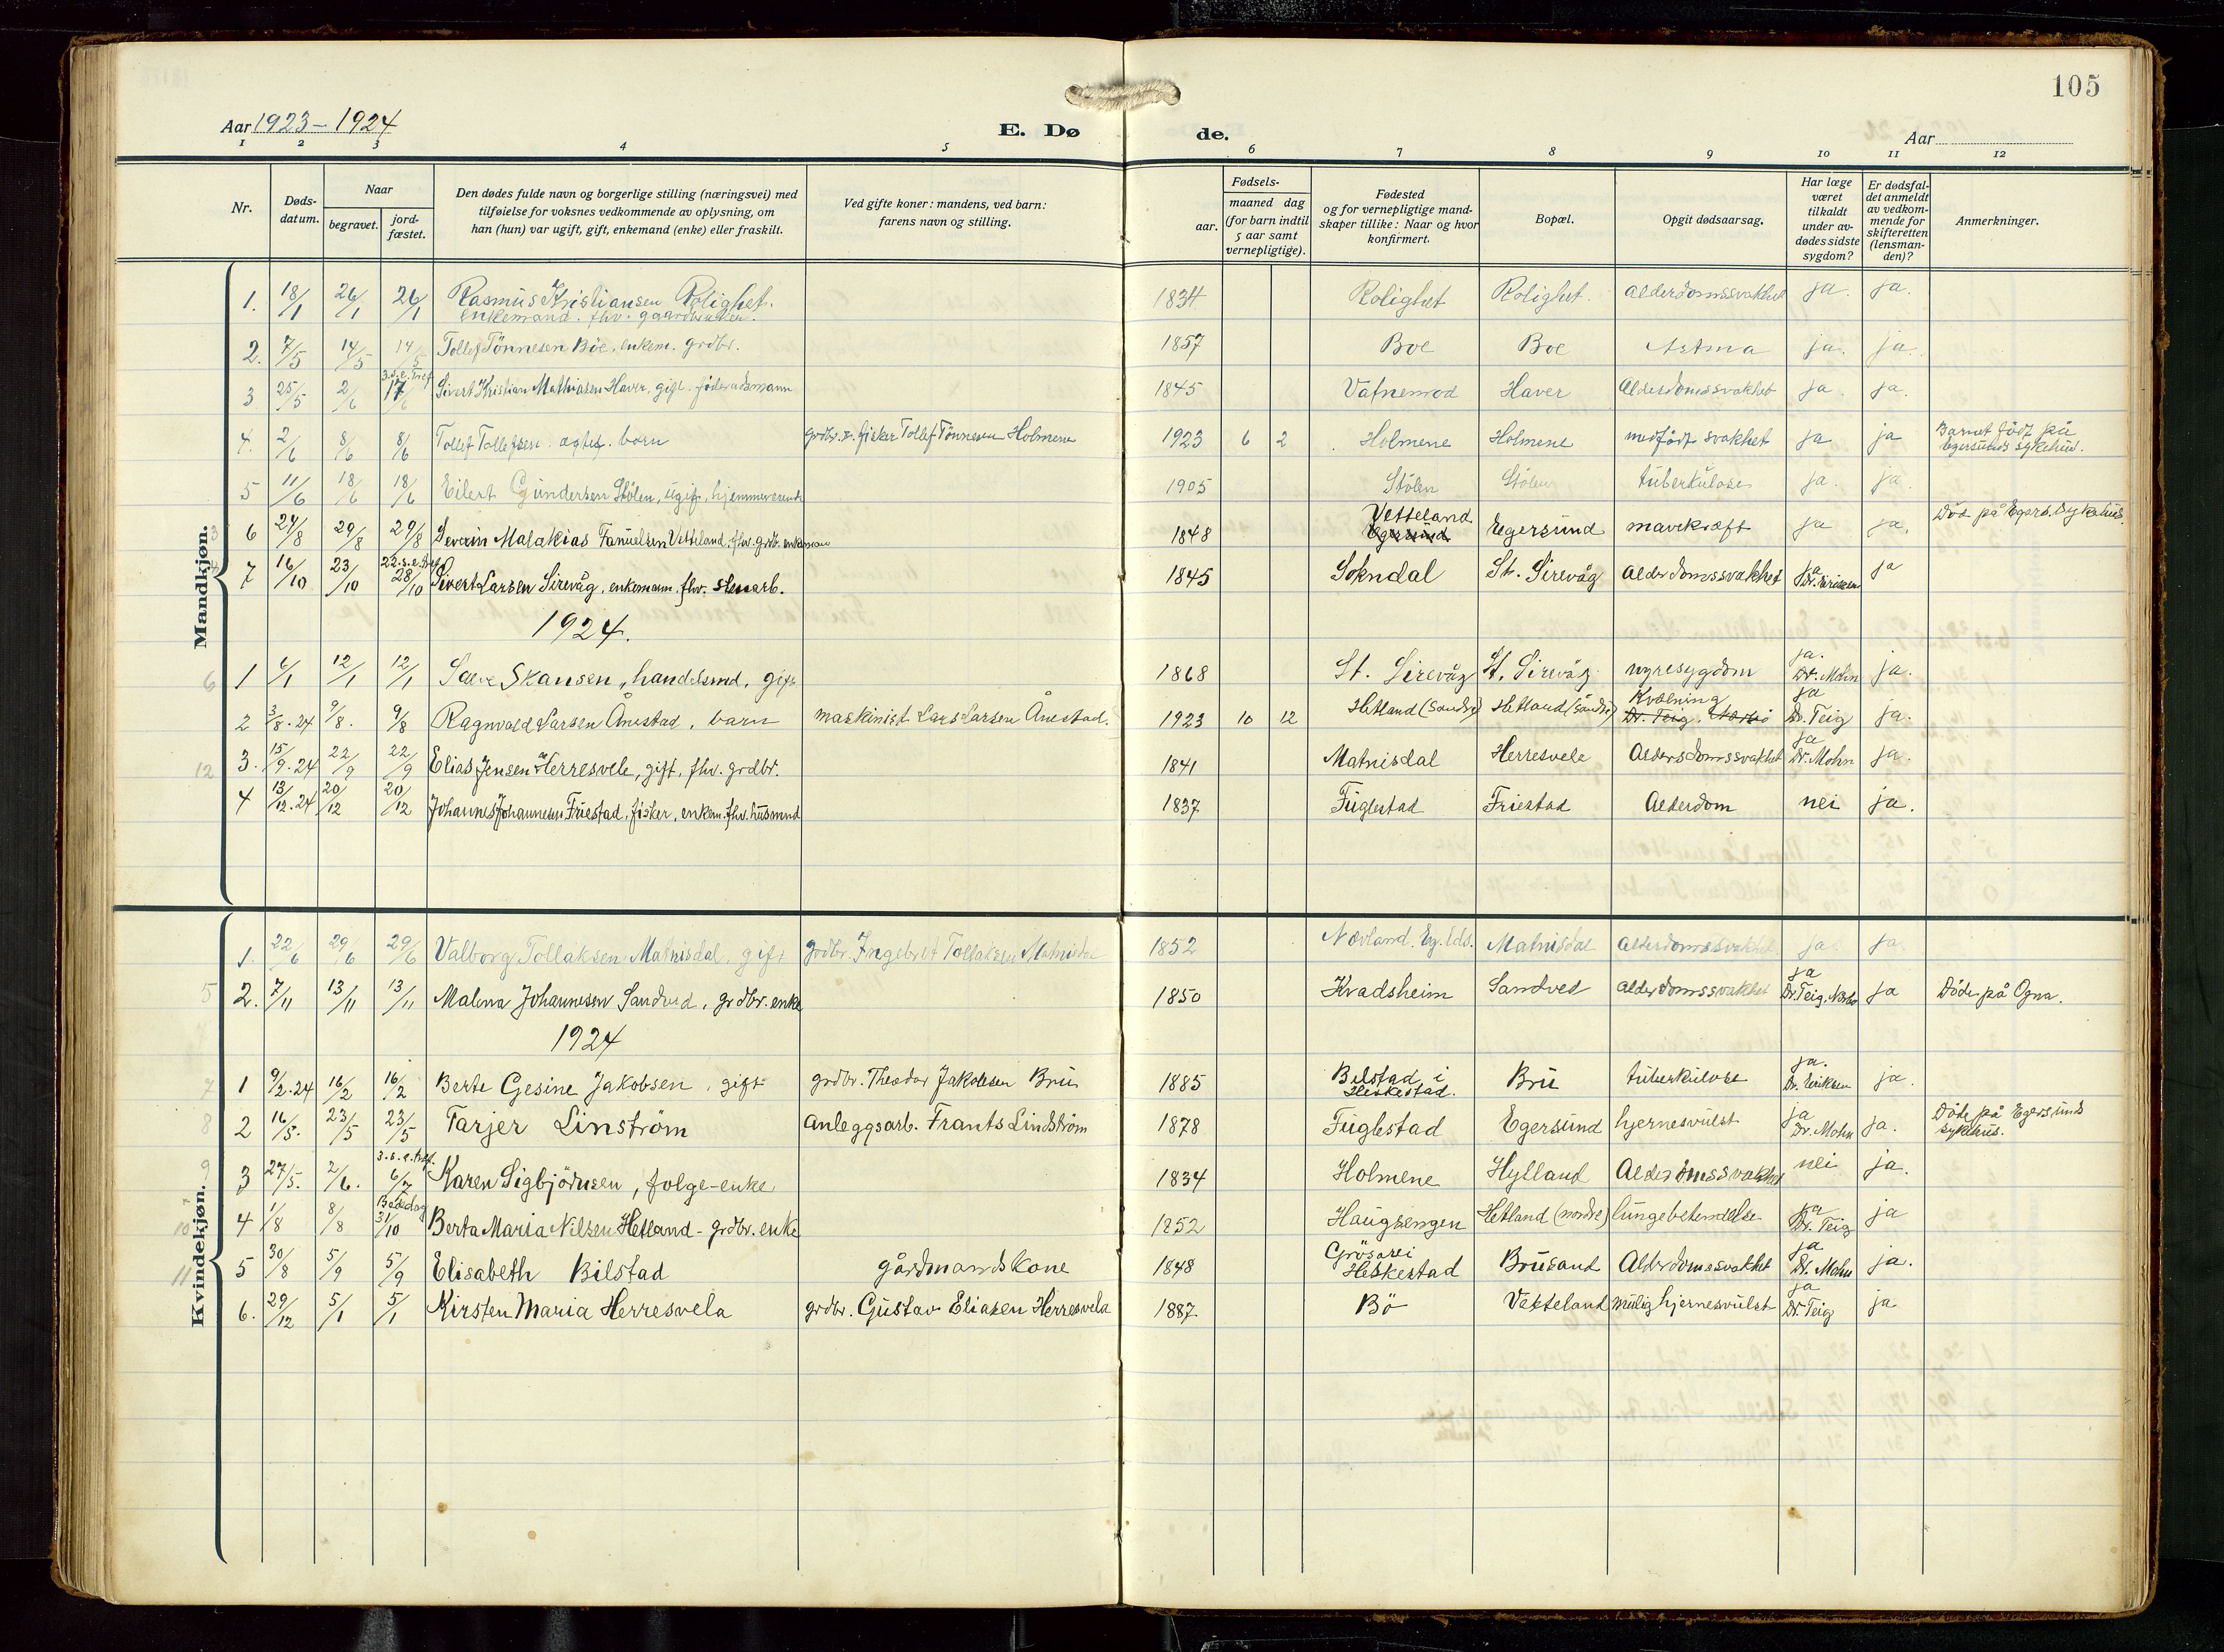 105
Aar 1923 – 1924
E. Dø de.
Aar
1 2 3 4 5 6 7 8 9 10 11 12
Nr.
Døds-
datum.
Naar
begravet.
jord-
fæstet.
Den dødes fulde navn og borgerlige stilling (næringsvei) med
tilføielse for voksnes vedkommende av oplysning, om
han (hun) var ugift, gift, enkemand (enke) eller fraskilt.
Ved gifte koner: mandens, ved barn:
farens navn og stilling.
Fødsels-
aar.
maaned dag
(for barn indtil
5 aar samt
vernepligtige).
Fødested
og for vernepligtige mand-
skaper tillike: Naar og hvor
konfirmert.
Bopæl.
Opgit dødsaarsag.
Har læge
været
tilkaldt
under av-
dødes sidste
sygdom?
Er dødsfal-
det anmeldt
av vedkom-
mende for
skifteretten
(lensman-
den)?
Anmerkninger.
Mandkjøn.
1. 18/1 26/1 26/1 Rasmus Kristiansen Rolighet. 1834 Rolighet Rolighet. Alderdomssvakhet ja. ja.
enkemand. fhv. gaardbruker.
2. 7/5 14/5 14/5 Tollef Tönnesen Böe, enkem. grdbr. 1857 Boe Boe Astma ja. ja.
3 25/5 2/6 3.s.e.Tref. 17/6 Sivert Kristian Mathiasen Haver, gift. föderådsmann 1845 Vatnemod Haver Alderdomssvakhet ja. ja.
4. 2/6 8/6 8/6 Tollef Tollefsen. ægtef. barn grdbr. fisker Tollef Tönnesen Holmene 1923 6 2 Holmene Holmene medfödt svakhet ja ja Barnet födt på
Egersunds sykehus.
5 11/6 18/6 18/6 Eilert Gundersen Stölen, ugift, hjemmeværende 1905 Stölen Stölen tuberkulose ja. ja.
6 24/8 29/8 29/8 Severin Malakias Fanuelsen Vetteland, fhv. grdb. enkemann 1848 Vetteland
Egersund Egersund mavekræft ja ja. Död på Egers. Sykehus.
7 16/10 23/10 22.s.e.Tref. 28/10 Sivert Larsen Sirevåg, enkemann, fhv. stenarb. 1845 Sokndal St. Sirevåg Alderdomssvakhet ja Dr. Eriksen ja
1924.
1 6/1 12/1 12/1 Skansen, handelsmd, gift 1868 St. Sirevåg St. Sirevåg nyresygdom ja. Dr. Mohn ja.
2 3/8.24 9/8. 9/8 Ragnvald Larsen Ånestad, barn maskinist Lars Larsen Ånestad. 1923 10 12 Hetland (Söndre) Hetland (söndre) Kvælning
Dr. Teig, ja Dr. Teig ja.
3. 15/9.24 22/9 22/9 Elias Jensen Herresvele, gift, fhv. grdbr. 1841 Matnisdal Herresvele Aldersdomssvakhet ja Dr. Mohn ja.
4 13/12.24 20/12 20/12 Johannes Johannesen Friestad, fisker, enkem. fhv. husmnd 1837 Fuglestad Friestad Alderdom nei ja.
Kvindekjøn.
1. 22/6 29/6 29/6 Valborg Tollaksen Matnisdal, gift grdbr. Ingebret Tollaksen Matnisdal 1852 Nevland. Eg. lds. Matnisdal Alderdomssvakhet ja ja
2. 7/11 13/11 13/11 Malena Johannesen Sandved, grdbr. enke 1850 Kvadsheim Sandved Alderdomssvakhet ja Dr. Teig. Nærbö ja Döde på Ogna.
1924
1 9/2.24 16/2 16/2 Berte Gesine Jakobsen, gift grdbr. Theodor Jakobsen Bru 1885 Bilstad i
Heskestad. Bru tuberkulose ja. Dr. Eriksen ja.
2 16/5. 23/5 23/5 Tarjer Linström Anleggsarb. Frants Lindström 1878 Fuglestad Egersund hjernesvulst ja Dr. Mohn ja. Döde på Egersunds
sykehus.
3 27/5. 2/6. 3.s.e.tref. 6/7 Karen Sigbjörnsen, folge-enke 1834 Holmene Hylland Alderdomssvakhet nei ja.
4 1/8 8/8 Bededag 31/10 Berta Maria Nilsen Hetland – grdbr. enke 1852 Haugsengen Hetland (nordre) lungebetendelse ja Dr. Teig ja
5 30/8 5/9 5/9 Elisabeth Bilstad gårdmandskone 1848 Grösæei
Heskestad Brusand Alderdomssvakhet ja Dr. Mohn ja.
6. 29/12 5/1 5/1 Kirsten Maria Herresvela grdbr. Gustav Eliasen Herresvela 1887 Bö Vetteland mulig hjernesvulst ja Dr. Teig ja